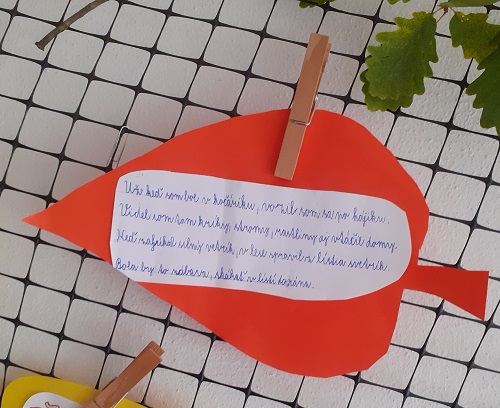 Už keď som bol v kočáriku, vozil som sa po hájiku.
Videl som tam kríky, stromy, rastliny aj vtáčie domy.
Keď zafúkal silný vetrík, v lese spravil z lístia svetrík.
Bola by to zábava, skákať v lístí zarána.